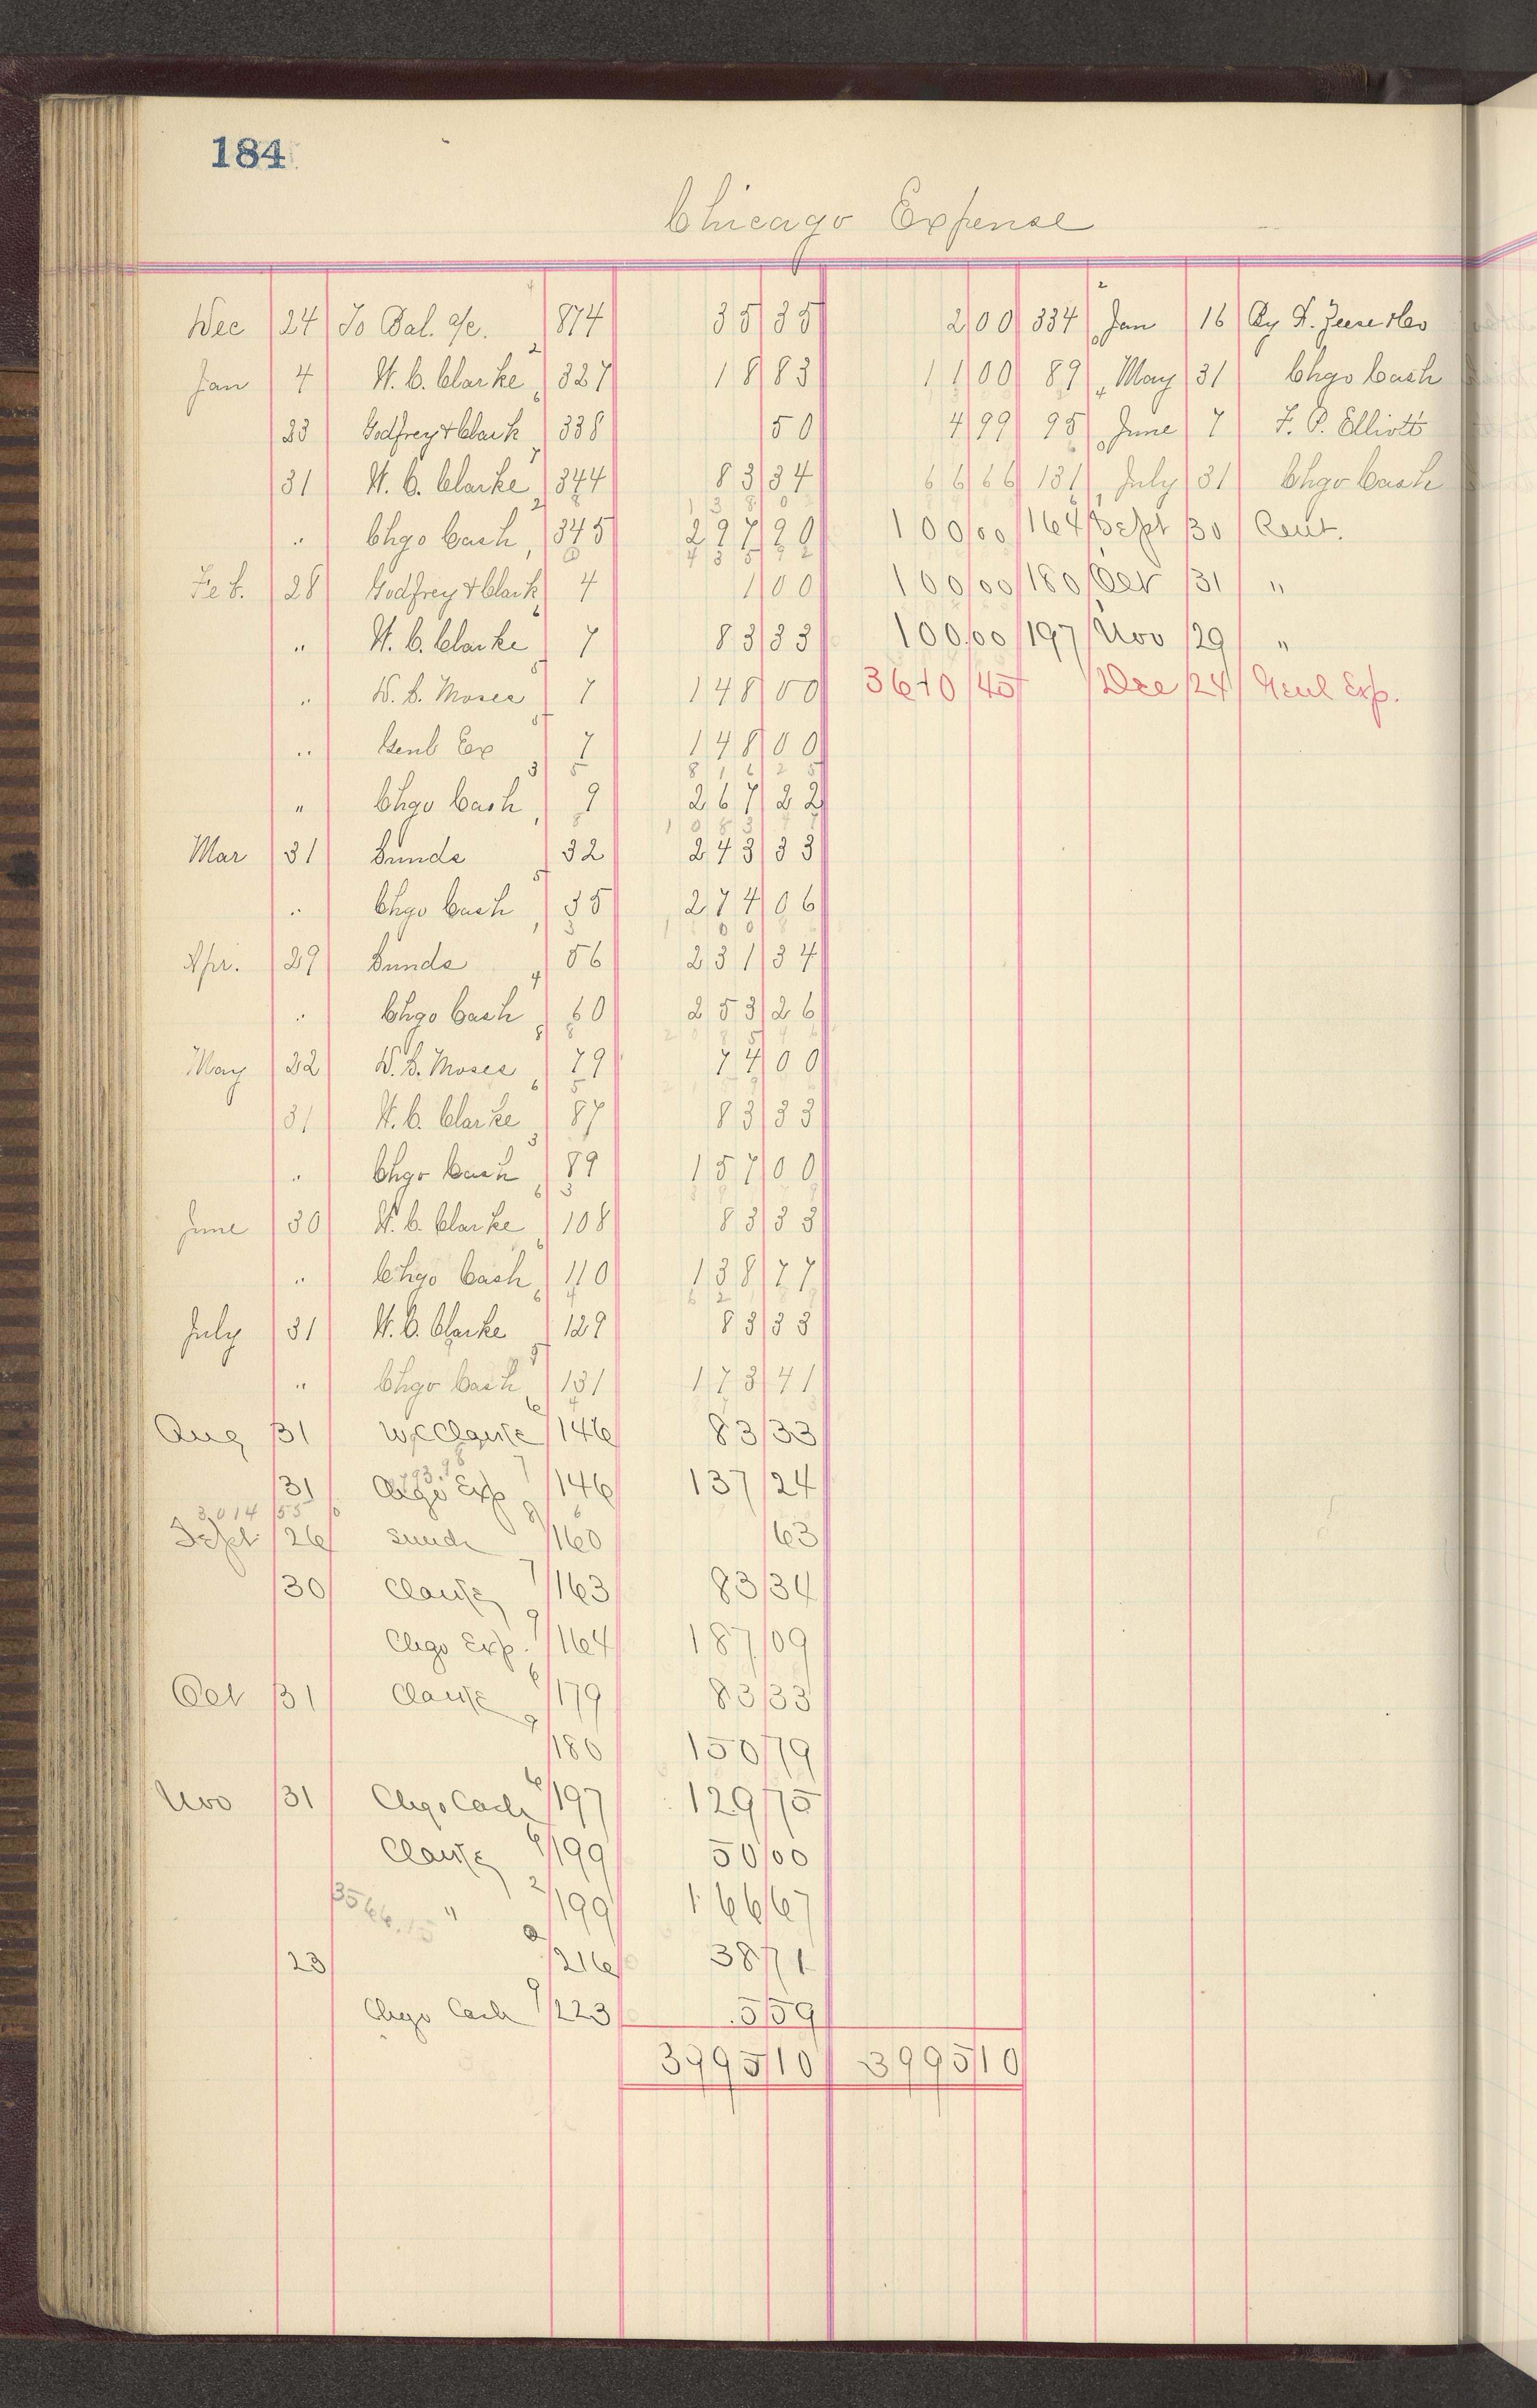 184
Chicago Expense
Dec 24 To Bal. a/c. 874 35 35 2 00 334 Jan 16 By F.
Jan 4 W. C. Clarke 327 18 83 11 00 89 May 31 Chgo Cash
23 Godfrey & Clark 338 50 4 99 95 June 7 F. P. Elliott
31 W. C. Clarke 344 83 34 66 66 131 July 31 Chgo Cash
" Chgo Cash 345 297 90 100 00 164 Sept 30 Rent.
Feb. 28 Godfrey & Clark 4 1 00 100 00 180 Oct 31 "
" W. C. Clarke 7 83 33 100 00 197 Nov 29 "
" W. B. Moses 7 148 00 3610 45 Dec 24 Genl Exp.
" Genl Ex 7 148 00
" Chgo Cash 9 267 22
Mar 31 Sunds 32 243 33
" Chgo Cash 35 274 06
Apr. 29 Sunds 56 231 34
" Chgo Cash 60 253 26
May 22 W. B. Moses 79 74 00
31 W. C. Clarke 87 83 33
" Chgo Cash 89 157 00
June 30 W. C. Clarke 108 83 33
" Chgo Cash 110 138 77
July 31 W. C. Clarke 129 83 33
" Chgo Cash 131 173 41
Aug 31 W C Clarke 146 83 33
31 Chgo Exp 146 137 24
3014 55
Sept 26 Sunds 160 63
30 Clarke 163 83 34
Chgo Exp. 164 187 09
Oct 31 Clarke 179 83 33
180 150 79
Nov 31 Chgo Cash 197 129 75
Clarke 199 50 00
3566.15 " 199 166 67
23 216 38 71
Chgo Cash 223 5 59
3995 10 3995 10